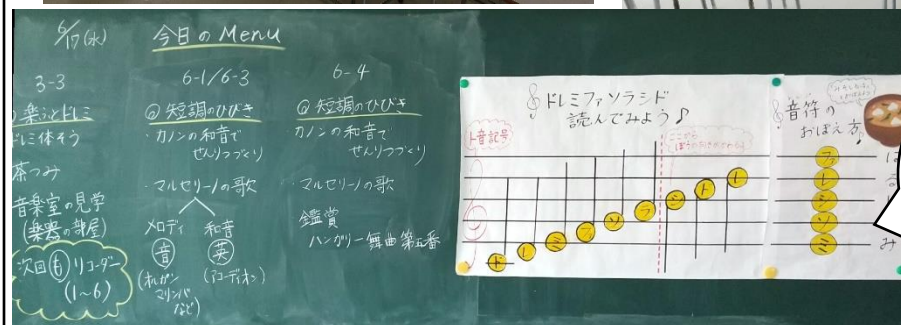 6/17(水)
今日のMenu
3-3
楽ふとドレミ
ドレミ体そう
茶つみ
音楽室の見学
(楽器の部屋)
次回も リコーダー
(1~6)
6-1/6-3
◎短調のひびき
・カノンの和音で
せんりつづくり
・マルセリーノの歌
メロディ 和音
音 英
(オルガン
マリンバ
など)
(アコーディオン)
6-4
◎短調のひびき
カノンの和音で
せんりつづくり
マルセリーノの歌
鑑賞
ハンガリー舞曲第五番
ドレミファソラシド
読んでみよう♪
ト音記号
ド レ ミ ファ ソ ラ シ ド レ
音符の
おぼえ方
ファ
レ
シ
ソ
ミ
み